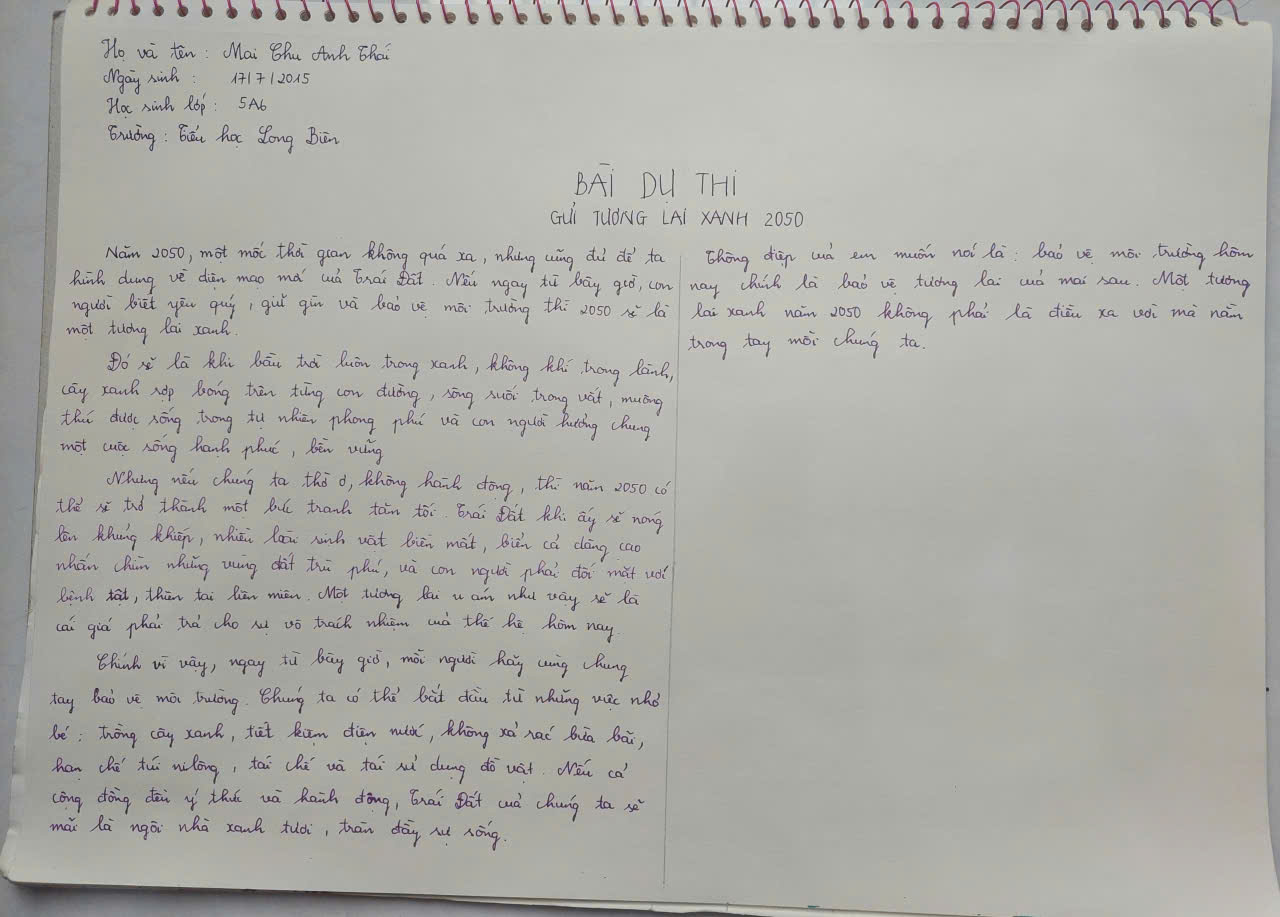 Họ và tên : Mai Thu Anh Thái
Ngày sinh : 17/7/2015
Học sinh lớp : 5A6
Trường : Tiểu học Long Biên
BÀI DỰ THI
GỬI TƯƠNG LAI XANH 2050
Năm 2050, một mốc thời gian không quá xa, nhưng cũng đủ để ta
hình dung về diện mạo mới của Trái Đất. Nếu ngay từ bây giờ, con
người biết yêu quý, giữ gìn và bảo vệ môi trường thì 2050 sẽ là
một tương lai xanh.
Đó sẽ là khi bầu trời luôn trong xanh, không khí trong lành,
cây xanh rợp bóng trên từng con đường, sông suối trong vắt, muông
thú được sống trong tự nhiên phong phú và con người hưởng chung
một cuộc sống hạnh phúc, bền vững
Nhưng nếu chúng ta thờ ơ, không hành động, thì năm 2050 có
thể sẽ trở thành một bức tranh tăm tối. Trái Đất khi ấy sẽ nóng
lên khủng khiếp, nhiều loài sinh vật biến mất, biển cả dâng cao
nhấn chìm những vùng đất trù phú, và con người phải đối mặt với
bệnh tật, thiên tai liên miên. Một tương lai u ám như vậy sẽ là
cái giá phải trả cho sự vô trách nhiệm của thế hệ hôm nay.
Chính vì vậy, ngay từ bây giờ, mỗi người hãy cùng chung
tay bảo vệ môi trường. Chúng ta có thể bắt đầu từ những việc nhỏ
bé : trồng cây xanh, tiết kiệm điện nước, không xả rác bừa bãi,
hạn chế túi nilông, tái chế và tái sử dụng đồ vật. Nếu cả
cộng đồng đều ý thức và hành động, Trái Đất của chúng ta sẽ
mãi là ngôi nhà xanh tươi, tràn đầy sự sống.
Thông điệp của em muốn nói là : bảo vệ môi trường hôm
nay chính là bảo vệ tương lai của mai sau. Một tương
lai xanh năm 2050 không phải là điều xa vời mà nằm
trong tay mỗi chúng ta.